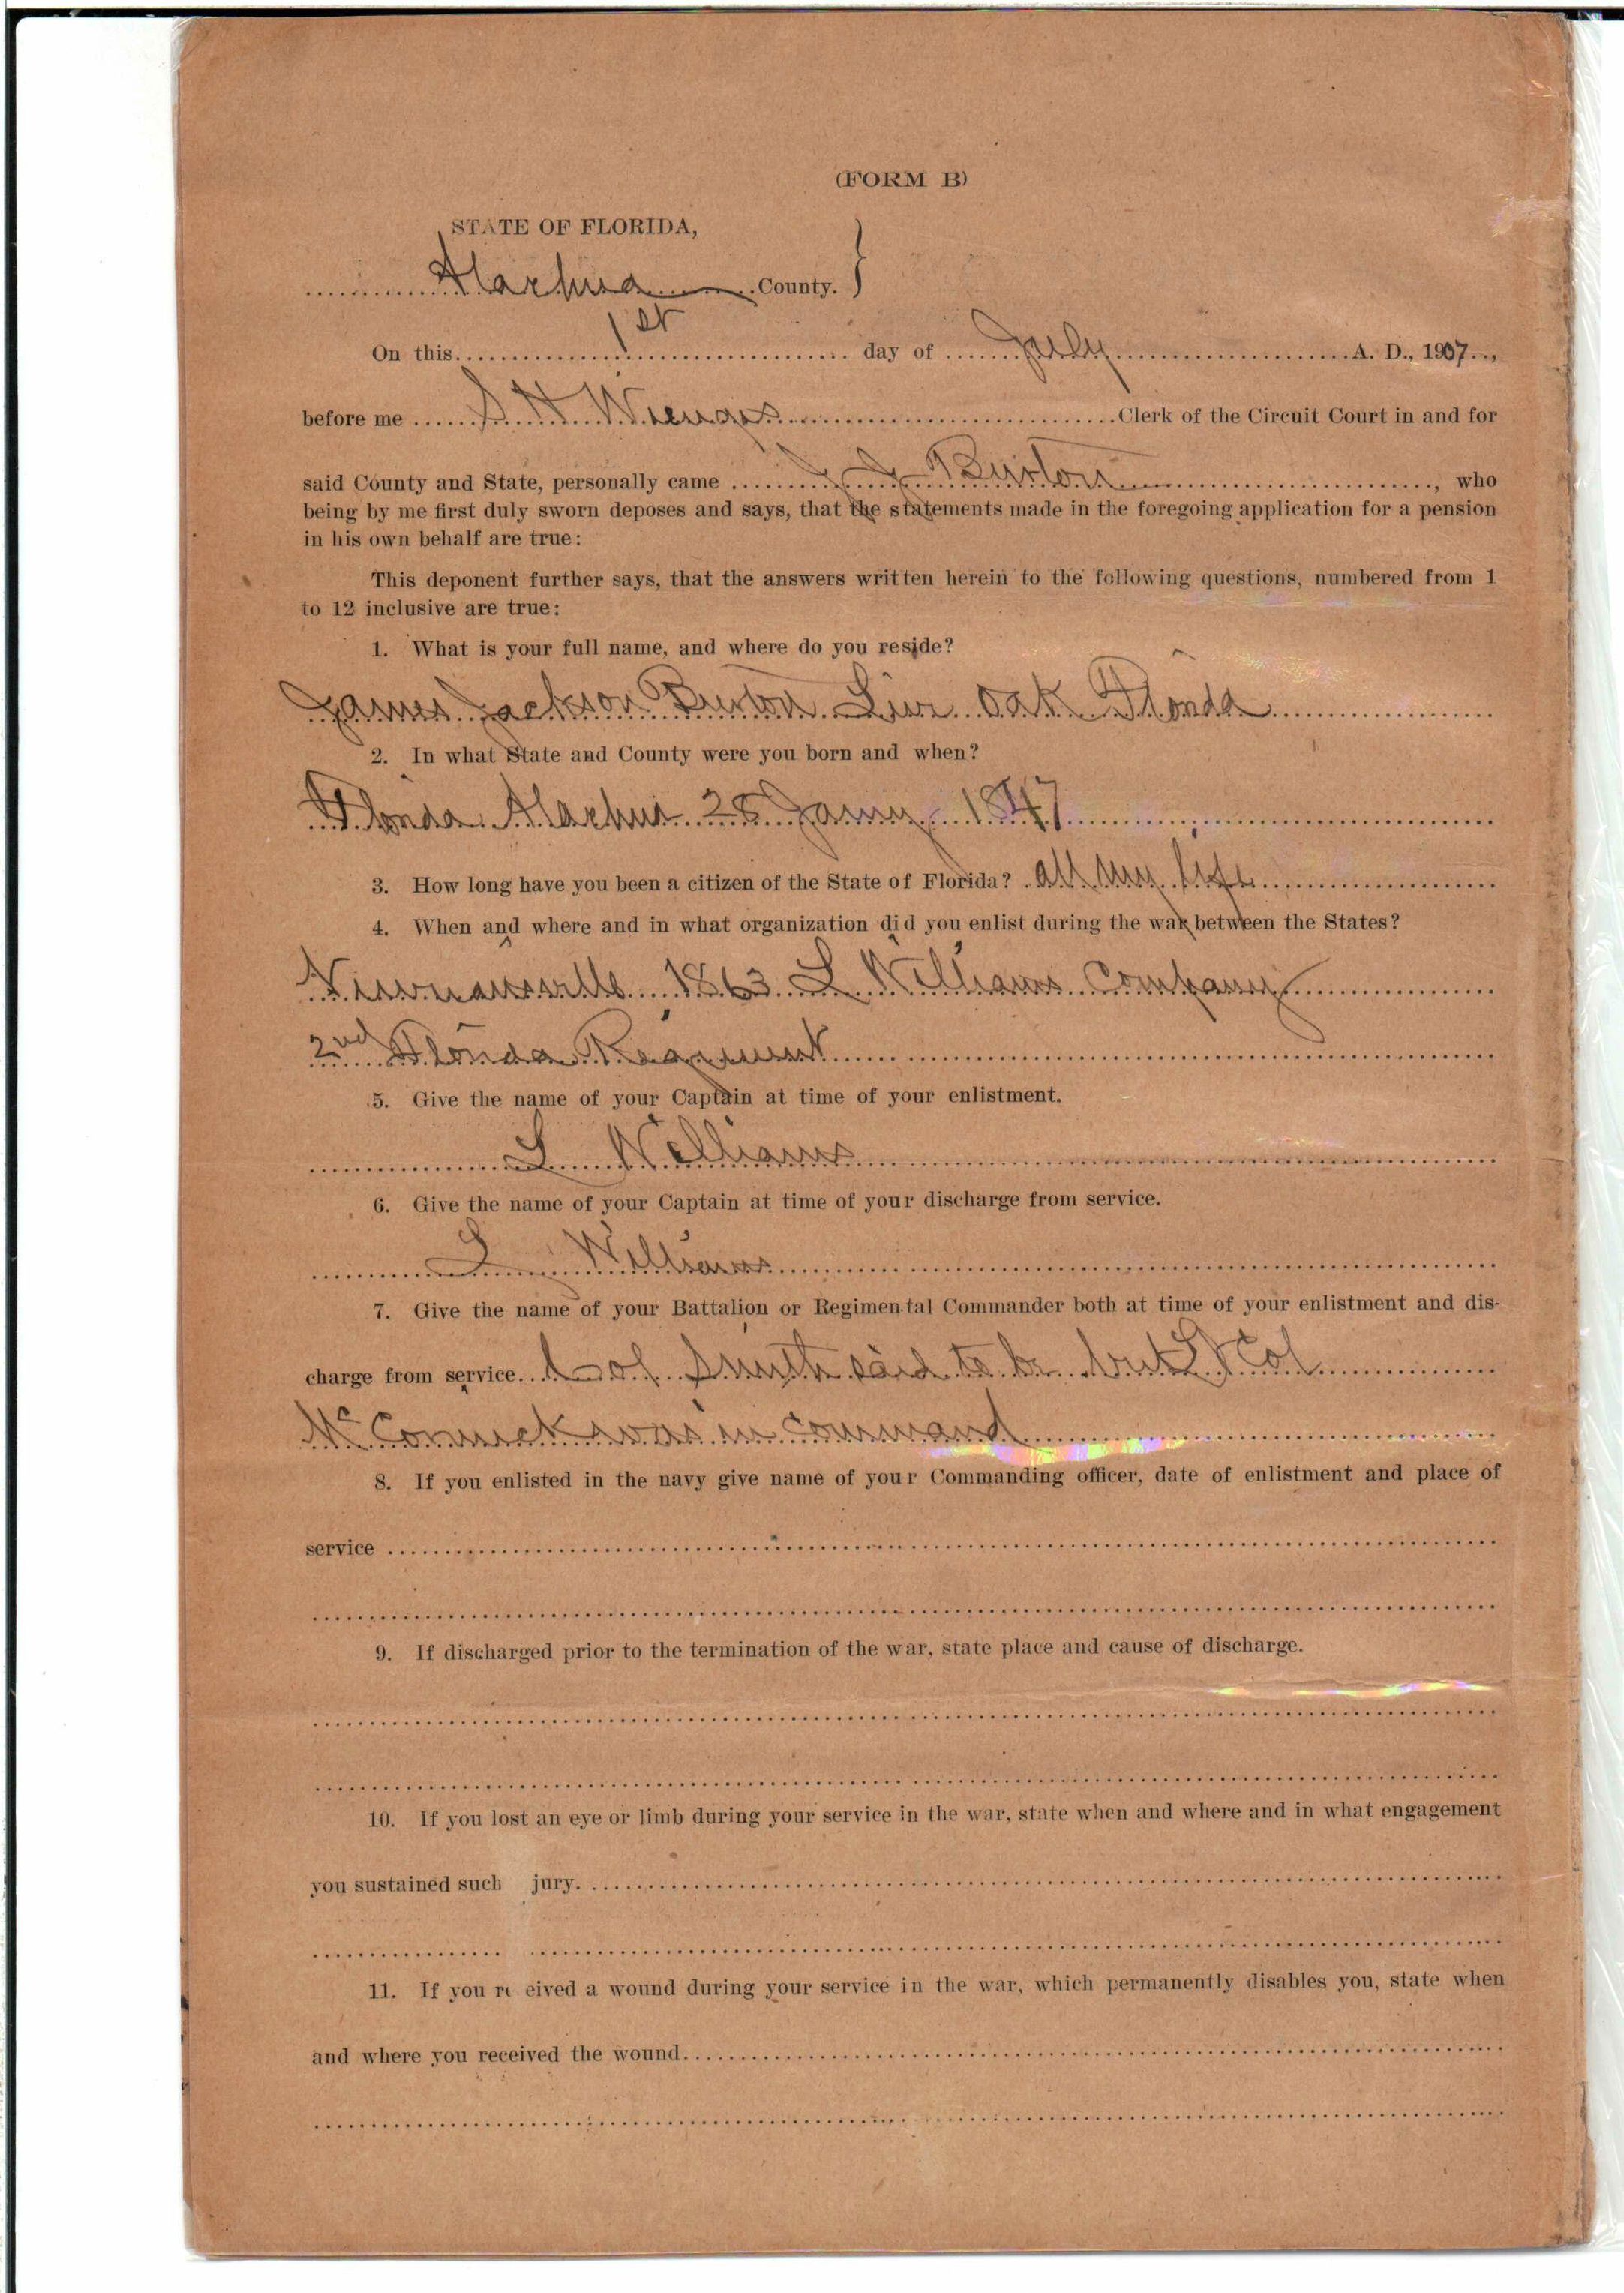 (FORM B)
STATE OF FLORIDA,
Alachua County. }
On this 1st day of July A. D., 1907..,
before me S. H. Wienges Clerk of the Circuit Court in and for
said County and State, personally came J. J. Burton, who
being by me first duly sworn deposes and says, that the statements made in the foregoing application for a pension
in his own behalf are true:
This deponent further says, that the answers written herein to the following questions, numbered from 1
to 12 inclusive are true:
1. What is your full name, and where do you reside?
James Jackson Burton Live Oak Florida
2. In what State and County were you born and when?
Florida Alachua 1847
3. How long have you been a citizen of the State of Florida? all my life
4. When and where and in what organization did you enlist during the war between the States?
Newnansville 1863 L Williams Company
2nd Florida Regiment
5. Give the name of your Captain at time of your enlistment.
L Williams
6. Give the name of your Captain at time of your discharge from service.
L Williams
7. Give the name of your Battalion or Regimental Commander both at time of your enlistment and dis-
charge from service. Col Smith said to be but Lt Col
McCormick was in command
8. If you enlisted in the navy give name of your Commanding officer, date of enlistment and place of
service
9. If discharged prior to the termination of the war, state place and cause of discharge.
10. If you lost an eye or limb during your service in the war, state when and where and in what engagement
you sustained such jury.
11. If you re eived a wound during your service in the war, which permanently disables you, state when
and where you received the wound.